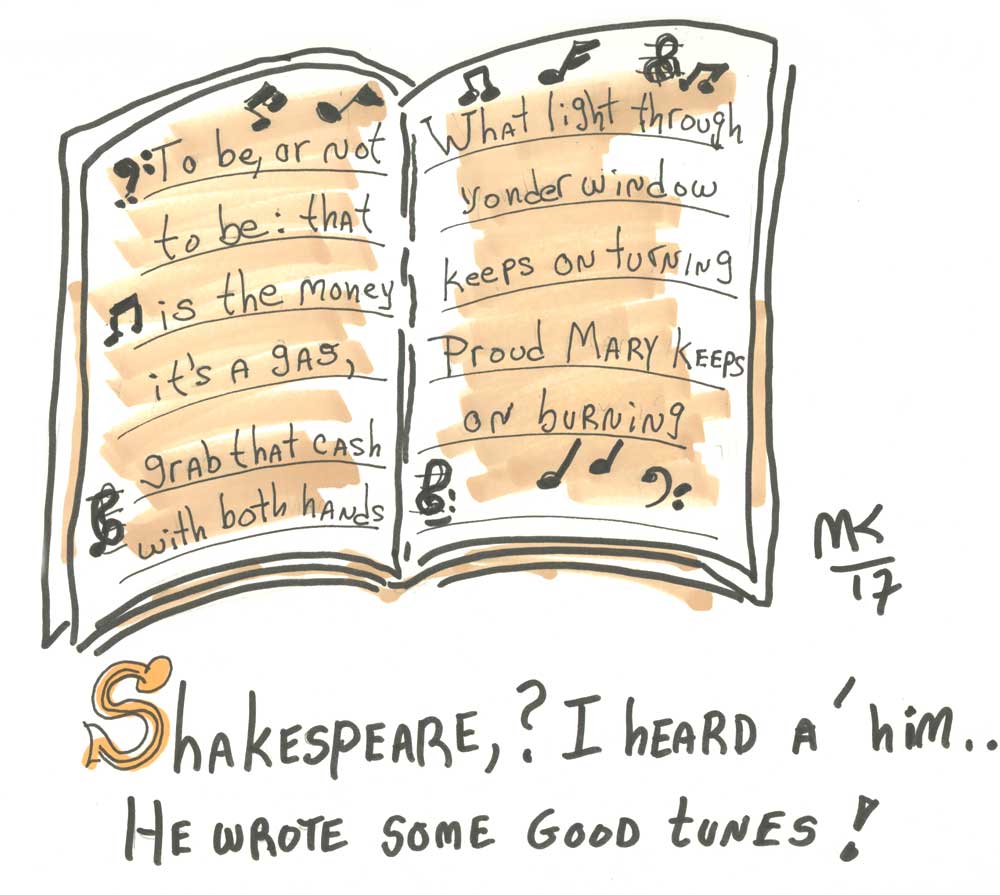 To be, or not
to be: that
is the money
it's a gas,
grab that cash
with both hands
What light through
yonder window
keeps on turning
Proud Mary keeps
on burning
MK
17
Shakespeare,? I heard a' him..
He wrote some good tunes!